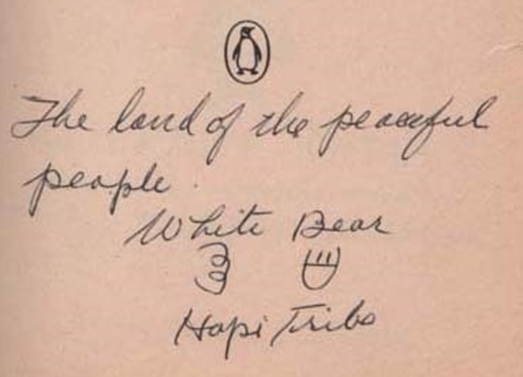 The land of the peaceful
people.
White Bear
Hopi Tribe